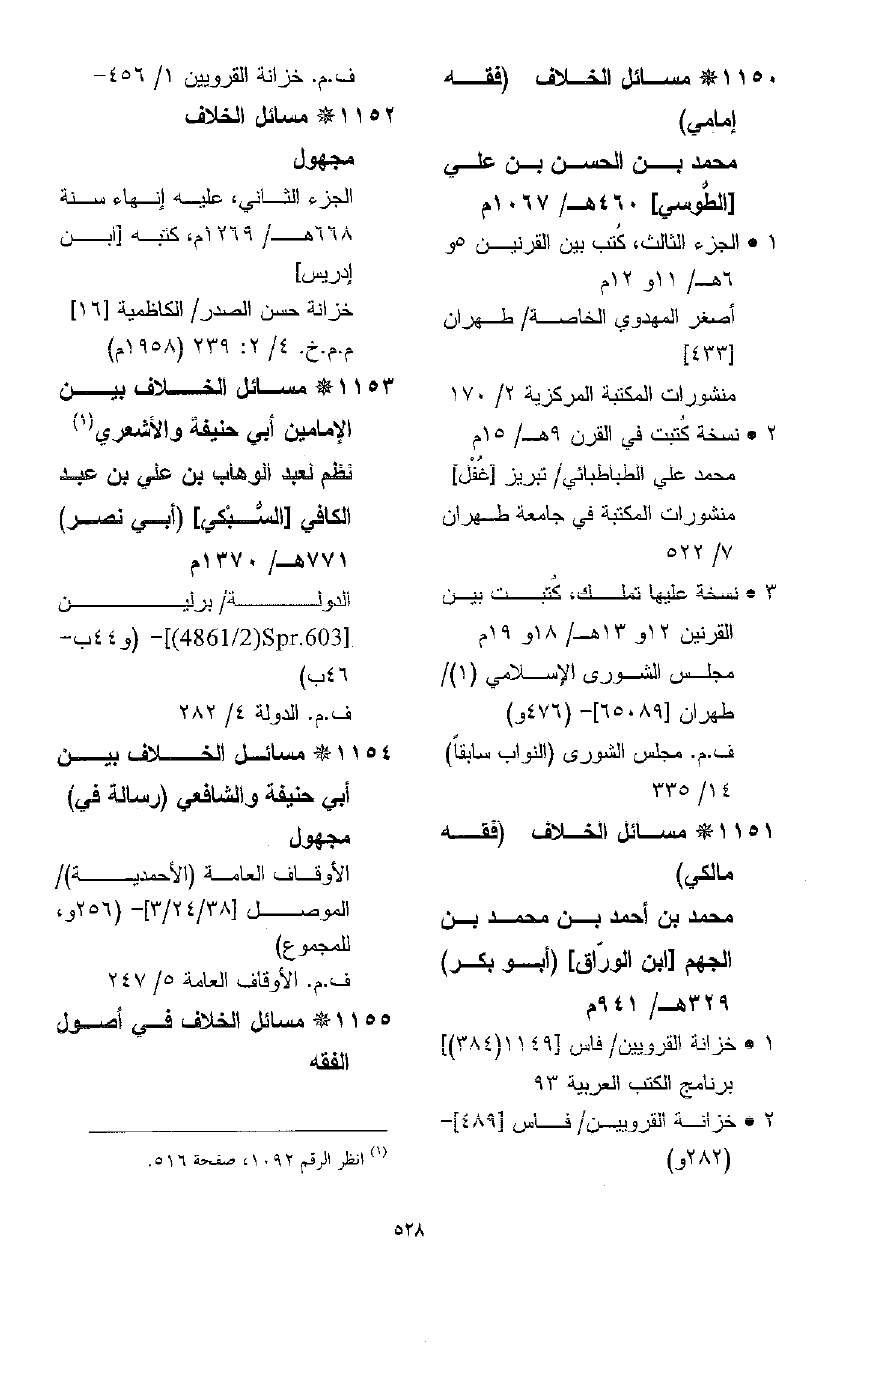 ١١٥٠ * مسائل الخلاف (فقه
إمامي)
محمد بن الحسن بن علي
[الطُّوسي] ٤٦٠هـ/ ١٠٦٧م
١ • الجزء الثالث، كُتب بين القرنين ٥و
٦هـ/ ١١و ١٢م
أصغر المهدوي الخاصة/ طهران
[٤٣٣]
منشورات المكتبة المركزية ٢/ ١٧٠
٢ • نسخة كُتبت في القرن ٩هـ/ ١٥م
محمد علي الطباطبائي/ تبريز [غُفْل]
منشورات المكتبة في جامعة طهران
٧/ ٥٢٢
٣ • نسخة عليها تملك، كُتبت بين
القرنين ١٢و ١٣هـ/ ١٨و ١٩م
مجلس الشورى الإسلامي (١)/
طهران [٦٥٠٨٩]- (٤٧٦و)
ف.م. مجلس الشورى (النواب سابقاً)
١٤/ ٣٣٥
١١٥١ * مسائل الخلاف (فقه
مالكي)
محمد بن أحمد بن محمد بن
الجهم [ابن الورّاق] (أبو بكر)
٣٢٩هـ/ ٩٤١م
١ • خزانة القرويين/ فاس [١١٤٩(٣٨٤)]
برنامج الكتب العربية ٩٣
٢ • خزانة القرويين/ فاس [٤٨٩]-
(٢٨٢و)
ف.م. خزانة القرويين ١/ ٤٥٦-
١١٥٢ * مسائل الخلاف
مجهول
الجزء الثاني، عليه إنهاء سنة
٦٦٨هـ/ ١٢٦٩م، كتبه [ابن
إدريس]
خزانة حسن الصدر/ الكاظمية [١٦]
م.م.خ. ٤/ ٢: ٢٣٩ (١٩٥٨م)
١١٥٣ * مسائل الخلاف بين
الإمامين أبي حنيفة والأشعري(١)
نظم لعبد الوهاب بن علي بن عبد
الكافي [السُّبْكي] (أبي نصر)
٧٧١هـ/ ١٣٧٠م
الدولة/ برلين
[4861/2)Spr.603)]- (و٤٤ب-
٤٦ب)
ف.م. الدولة ٤/ ٢٨٢
١١٥٤ * مسائل الخلاف بين
أبي حنيفة والشافعي (رسالة في)
مجهول
الأوقاف العامة (الأحمدية)/
الموصل [٣/٢٤/٣٨]- (٢٥٦و،
للمجموع)
ف.م. الأوقاف العامة ٥/ ٢٤٧
١١٥٥ * مسائل الخلاف في أصول
الفقه
(١) انظر الرقم ١٠٩٢، صفحة ٥١٦.
٥٢٨